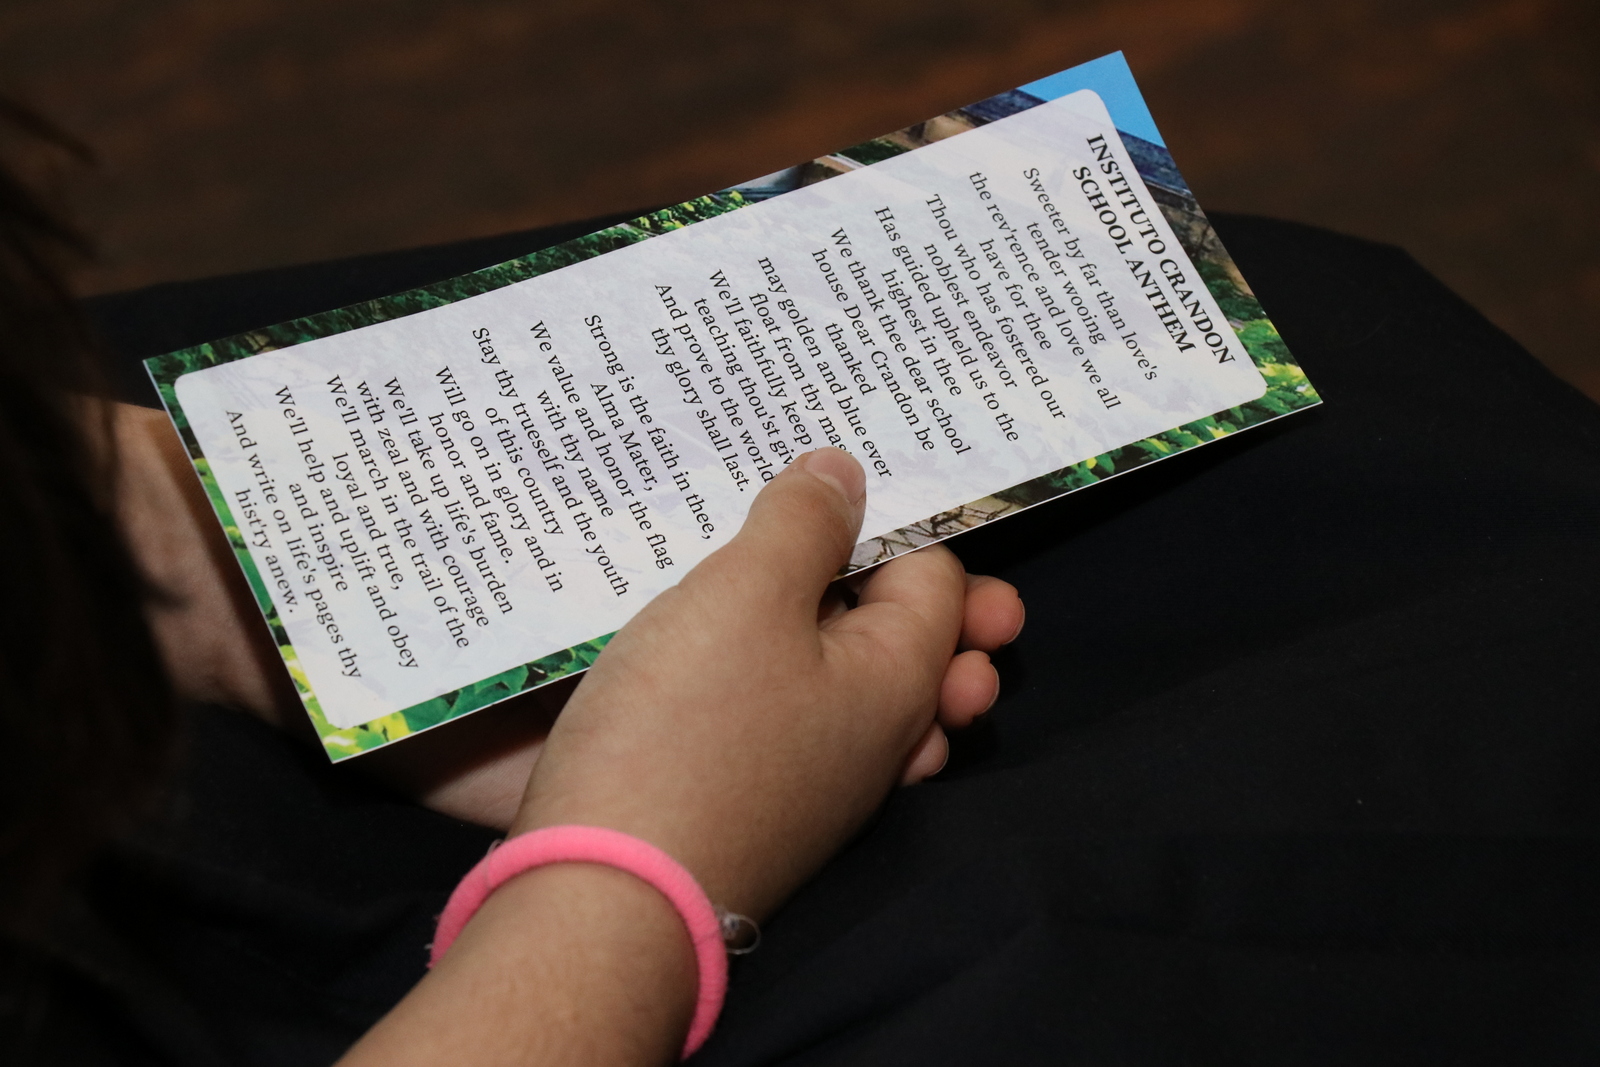 INSTITUTO CRANDON
SCHOOL ANTHEM
Sweeter by far than love's
tender wooing
the rev'rence and love we all
have for thee
Thou who has fostered our
noblest endeavor
Has guided upheld us to the
highest in thee
We thank thee dear school
house Dear Crandon be
thanked
may golden and blue ever
float from thy
We'll faithfully keep
teaching thou'st
And prove to the world
thy glory shall last.
Strong is the faith in thee,
Alma Mater,
We value and honor the flag
with thy name
Stay thy trueself and the youth
of this country
Will go on in glory and in
honor and fame.
We'll take up life's burden
with zeal and with courage
We'll march in the trail of the
loyal and true,
We'll help and uplift and obey
and inspire
And write on life's pages thy
hist'ry anew.